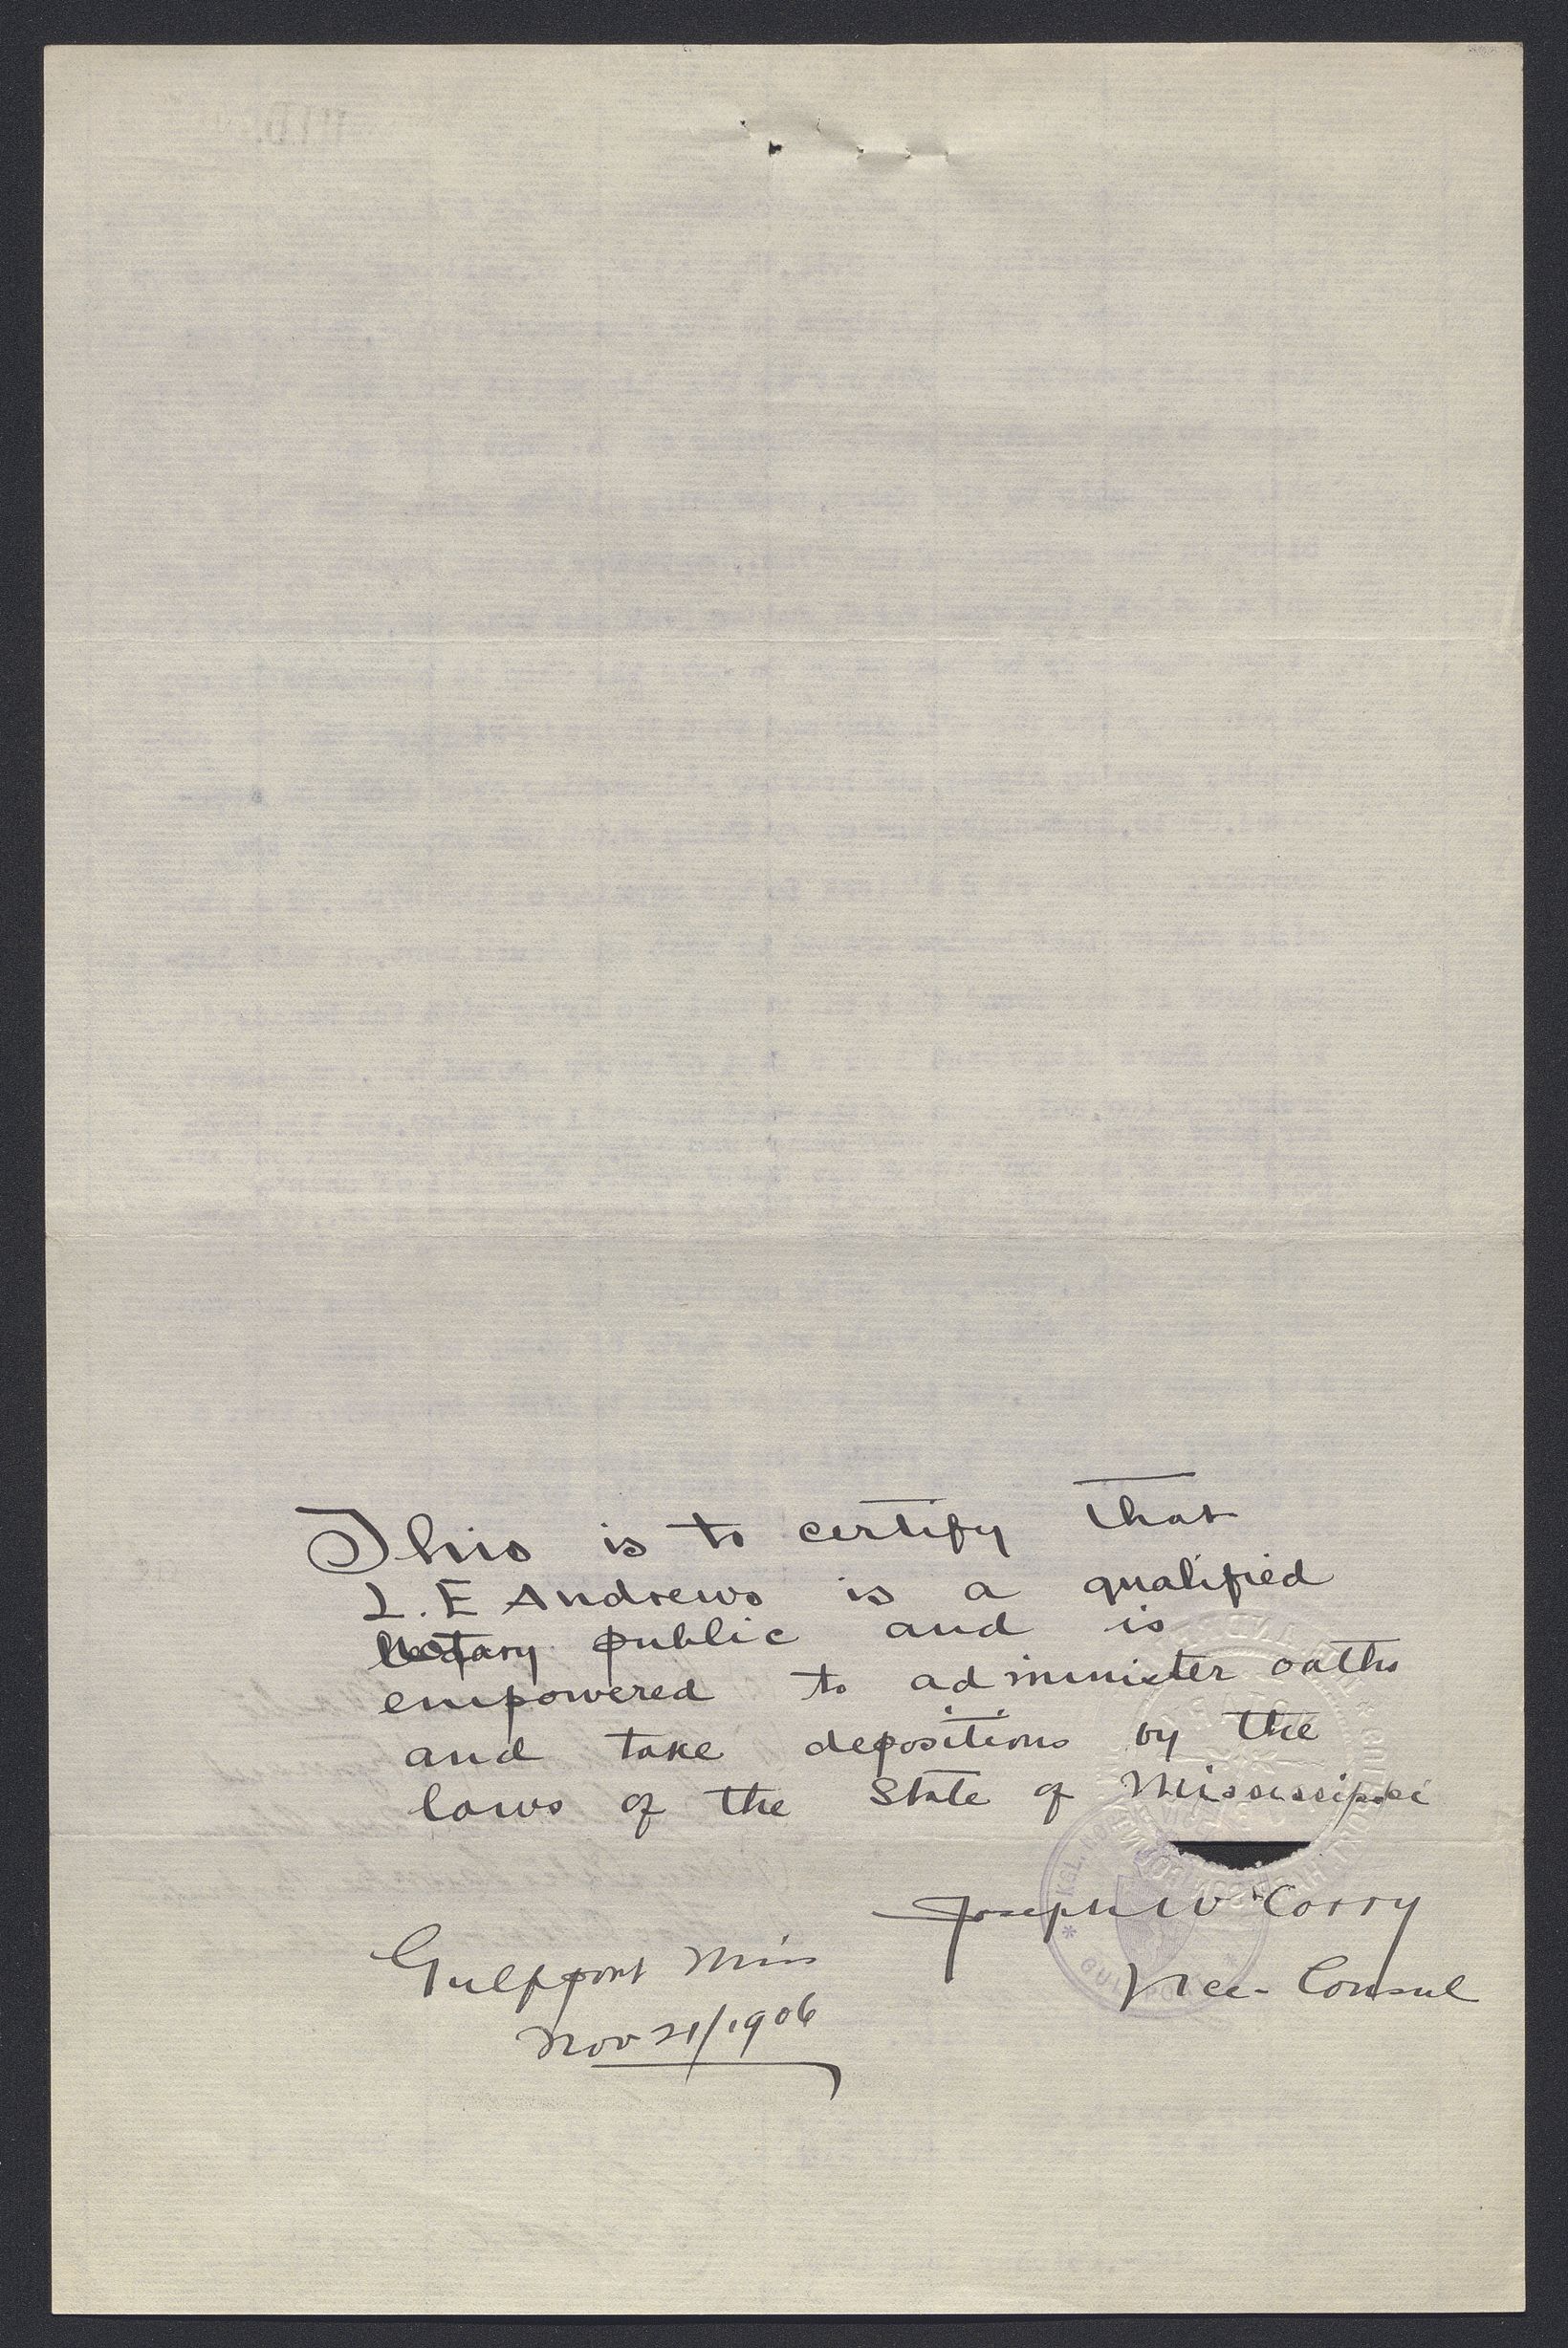 This is to certify that
L. E Andrews is a qualified
Notary public and is
empowered to administer oaths
and take depositions by the
laws of the State of Mississippi
Joseph W Corry
Vice-Consul
Gulfport Miss
Nov 21/1906